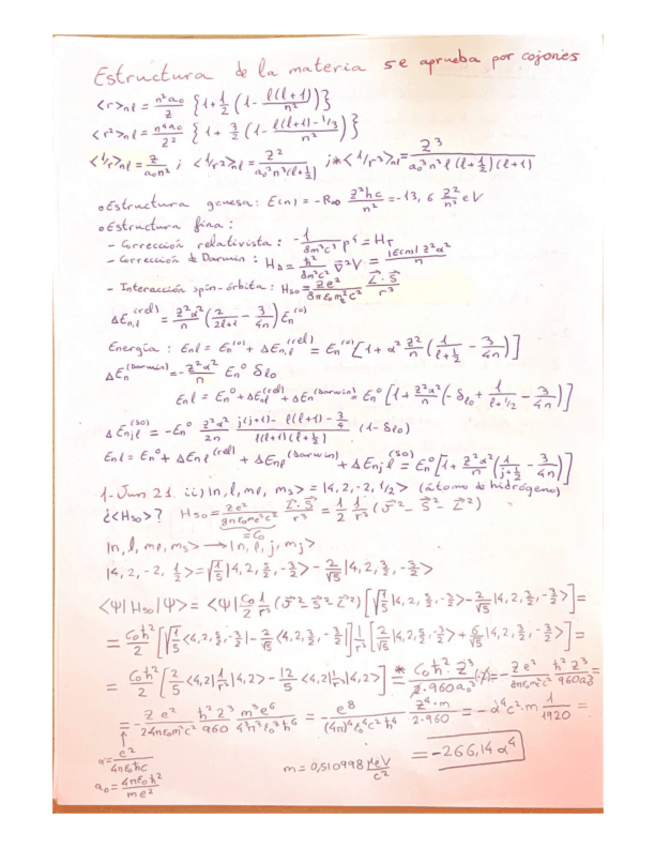 Estructura de la materia se aprueba por cojones
<r>nl = n²a₀/Z {1+1/2 (1- l(l+1)/n²)}
<r²>nl = n⁴a₀/Z² {1+ 3/2 (1- l(l+1)-1/3 / n²)}
<1/r>nl = Z/a₀n² ; <1/r²>nl = Z²/a₀²n³(l+1/2) ; *<1/r³>nl = Z³/a₀³n³l(l+1/2)(l+1)
• Estructura gruesa: E(n) = -R∞ Z²hc/n² = -13,6 Z²/n² eV
• Estructura fina:
- Corrección relativista: -1/8m³c² p⁴ = Hr
- Corrección de Darwin: HΔ = ħ²/8m²c² ∇²V = |E(n)| Z²α²/n
- Interacción spin-órbita: Hso = Ze²/8πε₀m²c² L·S/r³
ΔEn,l^(rel) = Z²α²/n (2/2l+1 - 3/4n) En^(0)
Energía: Enl = En^(0) + ΔEn,l^(rel) = En^(0) [1+α² Z²/n (1/l+1/2 - 3/4n)]
ΔEn^(Darwin) = -Z²α²/n En⁰ δl0
Enl = En⁰ + ΔEnl^(rel) + ΔEn^(Darwin) = En⁰ [1+ Z²α²/n (-δl0 + 1/l+1/2 - 3/4n)]
ΔEnjl^(SO) = -En⁰ Z²α²/2n j(j+1)- l(l+1)-3/4 / l(l+1)(l+1/2) (1-δl0)
Enl = En⁰ + ΔEnl^(rel) + ΔEnl^(Darwin) + ΔEnjl^(SO) = En⁰ [1+ Z²α²/n (1/j+1/2 - 3/4n)]
1-Jun 21. ii) |n, l, ml, ms> = |4, 2, -2, 1/2> (átomo de hidrógeno)
¿<Hso>? Hso = Ze²/8πε₀m²c² L·S/r³ = 1/2 1/r³ (J² - S² - L²)
= C₀
|n, l, ml, ms> → |n, l, j, mj>
|4, 2, -2, 1/2> = √1/5 |4, 2, 5/2, -3/2> - 2/√5 |4, 2, 3/2, -3/2>
<Ψ|Hso|Ψ> = <Ψ| C₀/2 1/r³ (J² - S² - L²) [√1/5 |4, 2, 5/2, -3/2> - 2/√5 |4, 2, 3/2, -3/2>] =
= C₀ħ²/2 [√1/5 <4, 2, 5/2, -3/2| - 2/√5 <4, 2, 3/2, -3/2|] 1/r³ [2/√5 |4, 2, 5/2, -3/2> + 6/√5 |4, 2, 3/2, -3/2>] =
= C₀ħ²/2 [2/5 <4,2|1/r³|4,2> - 12/5 <4,2|1/r³|4,2>] =* C₀ħ²·Z³/2·960a₀³ (-2) = -Ze²/8πε₀m²c² ħ²Z³/960a₀³ =
= -Ze²/24πε₀m²c² ħ²Z³/960 m³e⁶/4³π³ε₀³ħ⁶ = -e⁸/(4π)⁴ε₀⁴c²ħ⁴ Z⁴·m/2·960 = -α⁴c²·m 1/1920 =
α = e²/4πε₀ħc
= -266,14 α⁴
a₀ = 4πε₀ħ²/me²
m = 0,510998 MeV/c²